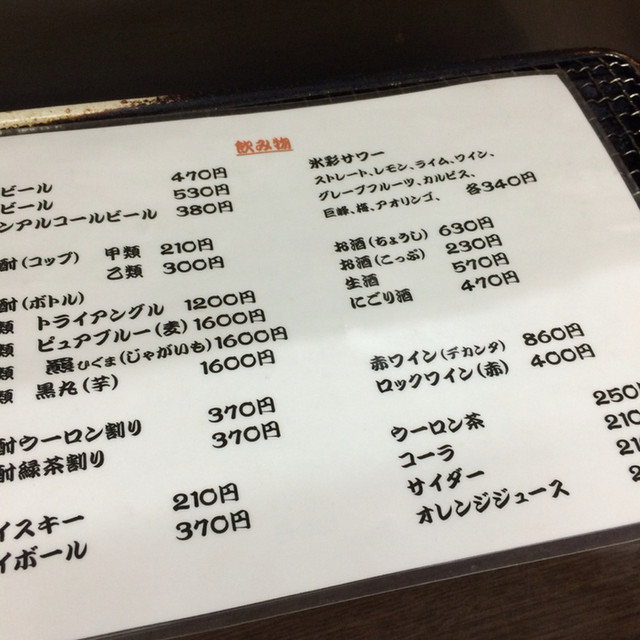 飲み物
ビール 470円
ビール 530円
ンアルコールビール 380円
酎(コップ) 甲類 210円
乙類 300円
酎(ボトル)
類 トライアングル 1200円
類 ピュアブルー(麦) 1600円
類 ひぐま(じゃがいも) 1600円
類 黒丸(芋) 1600円
酎ウーロン割り 370円
酎緑茶割り 370円
イスキー 210円
イボール 370円
氷彩サワー
ストレート、レモン、ライム、ワイン、
グレープフルーツ、カルピス、
巨峰、梅、アオリンゴ、 各340円
お酒(ちょうし) 630円
お酒(こっぷ) 230円
生酒 570円
にごり酒 470円
赤ワイン(デカンタ) 860円
ロックワイン(赤) 400円
ウーロン茶 250
コーラ 210
サイダー 210
オレンジジュース 2